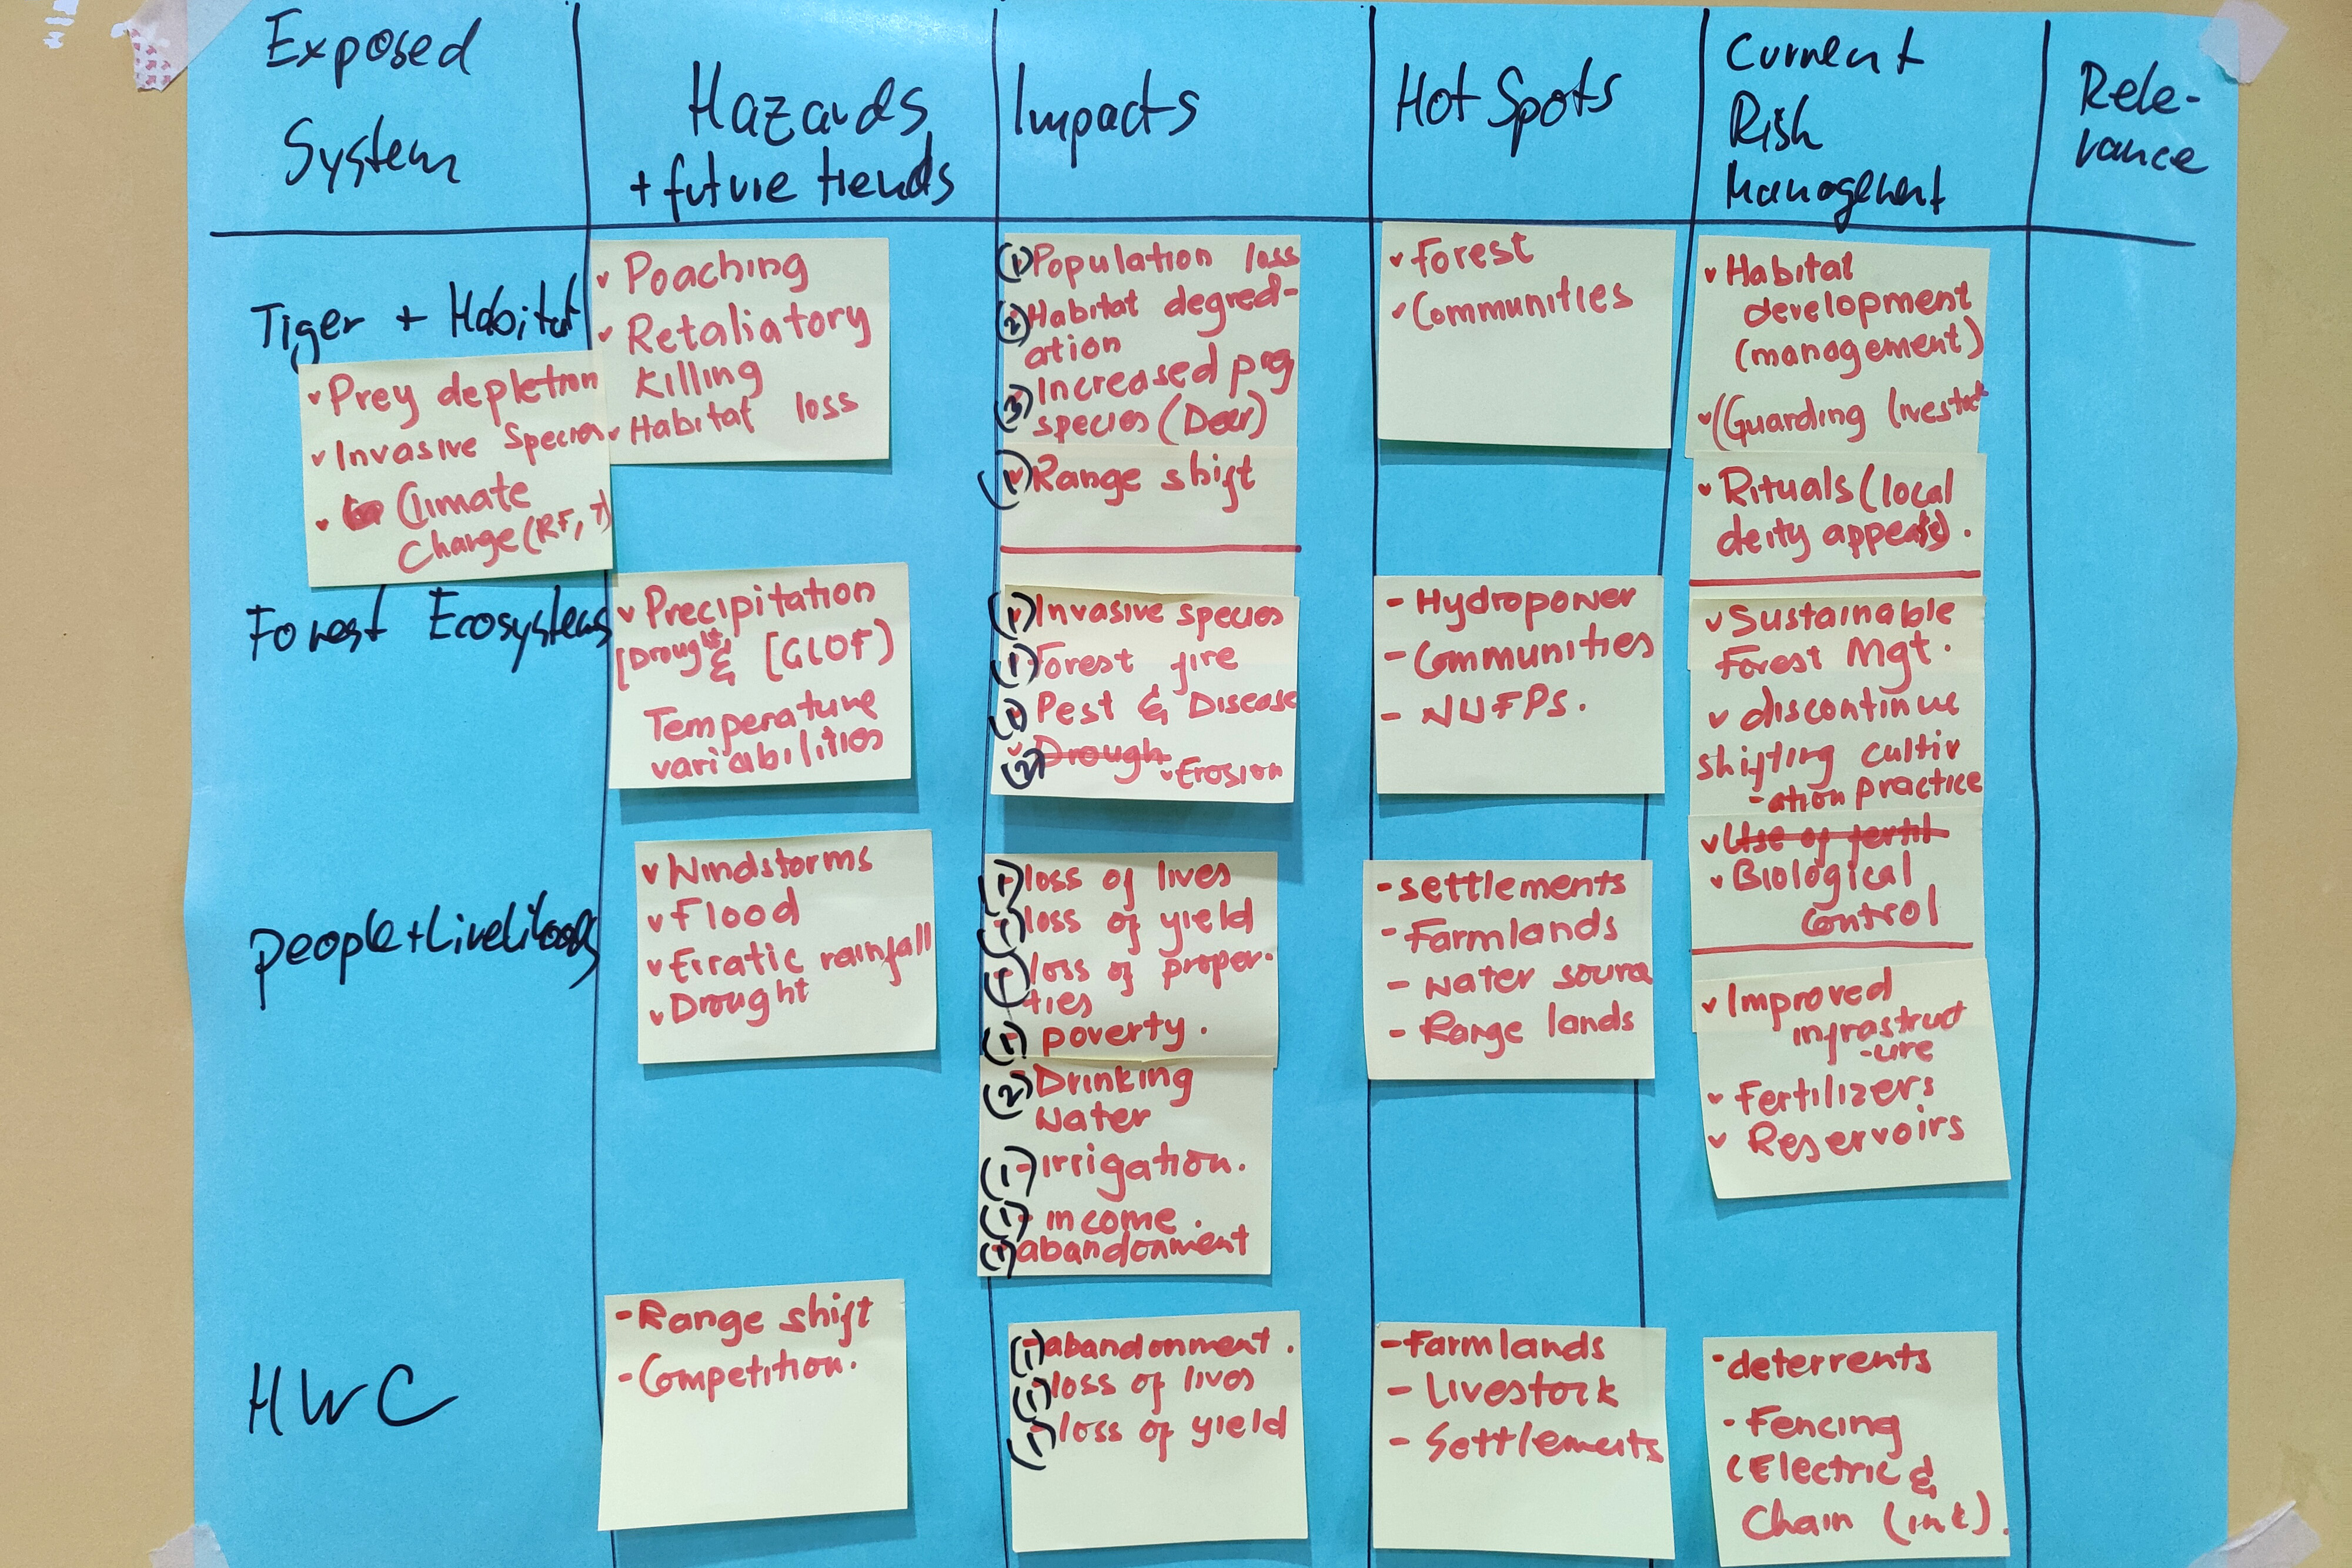 Exposed
System
Hazards
+ future trends
Impacts
Hot Spots
Current
Risk
Management
Rele-
vance
Tiger + Habitat
Prey depletion
Invasive Species
Climate
Change (RF, T)
Poaching
Retaliatory
Killing
Habitat loss
(1) Population loss
(2) Habitat degred-
ation
(3) Increased prey
species (Deer)
(1) Range shift
Forest
Communities
Habital
development
(management)
(Guarding livestock
Rituals (local
deity appeals).
Forest Ecosystems
Precipitation
[Drought & [GLOF)
Temperature
variabilities
(1) Invasive species
(1) Forest fire
Pest & Disease
(2) Drough Erosion
- Hydropower
- Communities
- NWFPs.
Sustainable
Forest Mgt.
discontinue
shifting cultiv
-ation practice
Use of fertil
Biological
control
People + Livelihoods
Windstorms
Flood
Erratic rainfall
Drought
(1) loss of lives
(1) loss of yield
(1) loss of proper-
ties
(1) poverty.
(2) Drinking
Water
(1) irrigation.
(1) income.
abandonment
- settlements
- Farmlands
- Water source
- Range lands
Improved
infrastruct
-ure
Fertilizers
Reservoirs
HWC
- Range shift
- Competition.
(1) abandonment.
(1) loss of lives
(1) loss of yield
- Farmlands
- Livestock
- Settlements
- deterrents
- Fencing
(Electric &
Chain (ink).